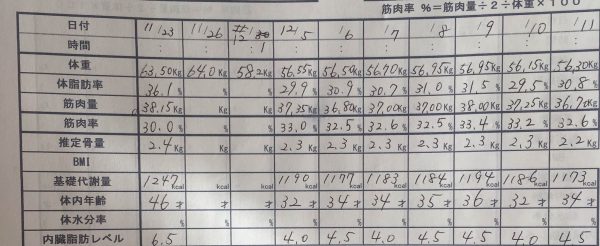 筋肉率 %=筋肉量÷2÷体重×100
日付 11/23 11/26 12/5 1/6 1/7 1/8 1/9 1/10 1/11
時間 : : : : : : : : : :
体重 63.50Kg 64.0Kg 58.2Kg 56.55Kg 56.50Kg 56.70Kg 56.95Kg 56.95Kg 56.15Kg 56.30Kg
体脂肪率 36.1% % % 29.9% 30.9% 30.7% 31.0% 31.5% 29.5% 30.8%
筋肉量 38.15Kg Kg Kg 37.35Kg 36.80Kg 37.00Kg 37.00Kg 38.00Kg 37.25Kg 36.70Kg
筋肉率 30.0% % % 33.0% 32.5% 32.6% 32.5% 33.4% 33.2% 32.6%
推定骨量 2.4Kg Kg Kg 2.3Kg 2.3Kg 2.3Kg 2.3Kg 2.3Kg 2.3Kg 2.2Kg
BMI
基礎代謝量 1247kcal kcal kcal 1190kcal 1177kcal 1183kcal 1184kcal 1194kcal 1186kcal 1173kcal
体内年齢 46才 才 才 32才 34才 34才 35才 36才 32才 34才
体水分率 % % % % % % % % % %
内臓脂肪レベル 6.5 4.0 4.5 4.5 4.5 4.5 4.0 4.5